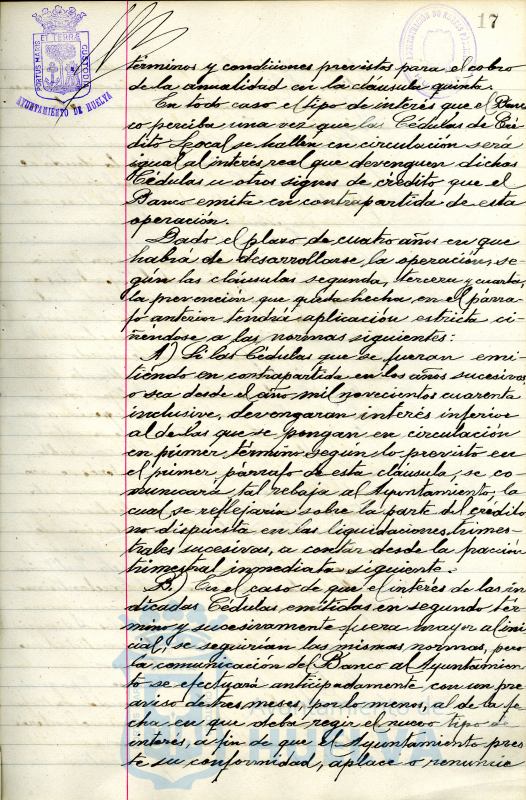 17
PORTUS MARIS ET TERRÆ CUSTODIA
AYUNTAMIENTO DE HUELVA
términos y condiciones previstos para el cobro
de la anualidad en la cláusula quinta.
En todo caso el tipo de interés que el Ban
co perciba una vez que las Cédulas de Cré
dito Local se hallen en circulación será
igual al interés real que devenguen dichas
Cédulas u otros signos de crédito que el
Banco emita en contrapartida de esta
operación.
Dado el plazo de cuatro años en que
habrá de desarrollarse, la operación, se
gún las cláusulas segunda, tercera y cuarta,
la prevención que queda hecha en el párra
fo anterior tendrá aplicación estricta ci
ñéndose a las normas siguientes:
A) Si las Cédulas que se fueran emi
tiendo en contrapartida en los años sucesivos
o sea desde el año mil novecientos cuarenta
inclusive, devengaran interés inferior
al de las que se pongan en circulación
en primer término, según lo previsto en
el primer párrafo de esta cláusula, se co
municará tal rebaja al Ayuntamiento, la
cual se reflejaría sobre la parte del crédito
no dispuesta en las liquidaciones trimes
trales sucesivas, a contar desde la fracción
trimestral inmediata siguiente.
B.) En el caso de que el interés de las in
dicadas Cédulas, emitidas en segundo tér
mino y sucesivamente fuera mayor al ini
cial, se seguirían las mismas normas, pero
la comunicación del Banco al Ayuntamien
to se efectuará anticipadamente con un pre
aviso de tres meses, por lo menos, al de la fe
cha en que deba regir el nuevo tipo de
interés, a fin de que el Ayuntamiento pres
te su conformidad, aplace o renuncie
HUELVA